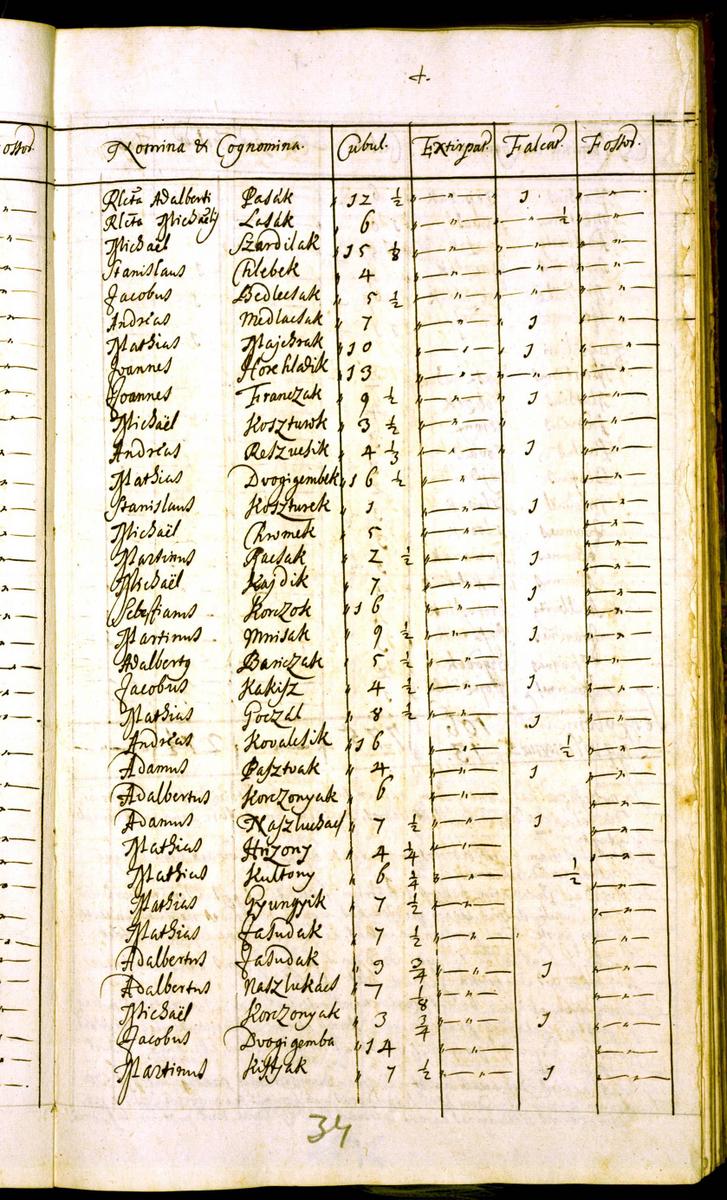 4.
Nomina & Cognomina. Cubul. Extirpat. Falcat. Fossor.
Rlcta Adalberti Pasák " 12 ½ " " 1 " "
Rlcta Michaëly Lasák " 6 " " " ½ " "
Michaël Szardilak " 15 ⅛ " " " "
Stanislaus Chlebek " 4 " " " " " "
Jacobus Bedlecsak " 5 ½ " " " " " "
Andreas Medlacsak " 7 " " 1 " "
Mathias Majchrak " 10 " " 1 " "
Joannes Horehladik " 13 " " " " " "
Joannes Franczak " 9 ½ " " 1 " "
Michaël Koszturok " 3 ½ " " " "
Andreas Reszucsik " 4 ⅓ " " 1 " "
Mathias Dvogigembek " 16 ½ " " " "
Stanislaus Koszturek " 1 1 " "
Michaël Chromek " 5 " " " "
Martinus Racsak " 2 ½ " " 1 " "
Michaël Kajdik " 7 " " 1 " "
Sebestianus Korczok " 16 " " " "
Martinus Mnisak " 9 ½ " " 1 " "
Adalberty Banczak " 5 ½ " " " "
Jacobus Kakisz " 4 ½ " " 1 " "
Mathias Goczál " 8 ½ " " 1 " "
Andreas Kovalcsik " 16 " " ½ " "
Adamus Pasztvak " 4 " " 1 " "
Adalbertus Korczonyak " 6 " " " "
Adamus Naszluchacs " 7 ½ " " 1 " "
Mathias Hrizony " 4 ¼ " " " "
Mathias Kultony " 6 ¾ " " ½ " "
Mathias Gyungyik " 7 ½ " " " "
Mathias Jasudak " 7 ½ " " " "
Adalbertus Jasudak " 9 ¾ " " 1 " "
Adalbertus Naszlukács " 7 ⅛ " "
Michaël Korczonyak " 3 ¾ " " 1 " "
Jacobus Dvogigemba " 14 " " " "
Martinus Kistjak " 7 ½ " " 1 " "
34